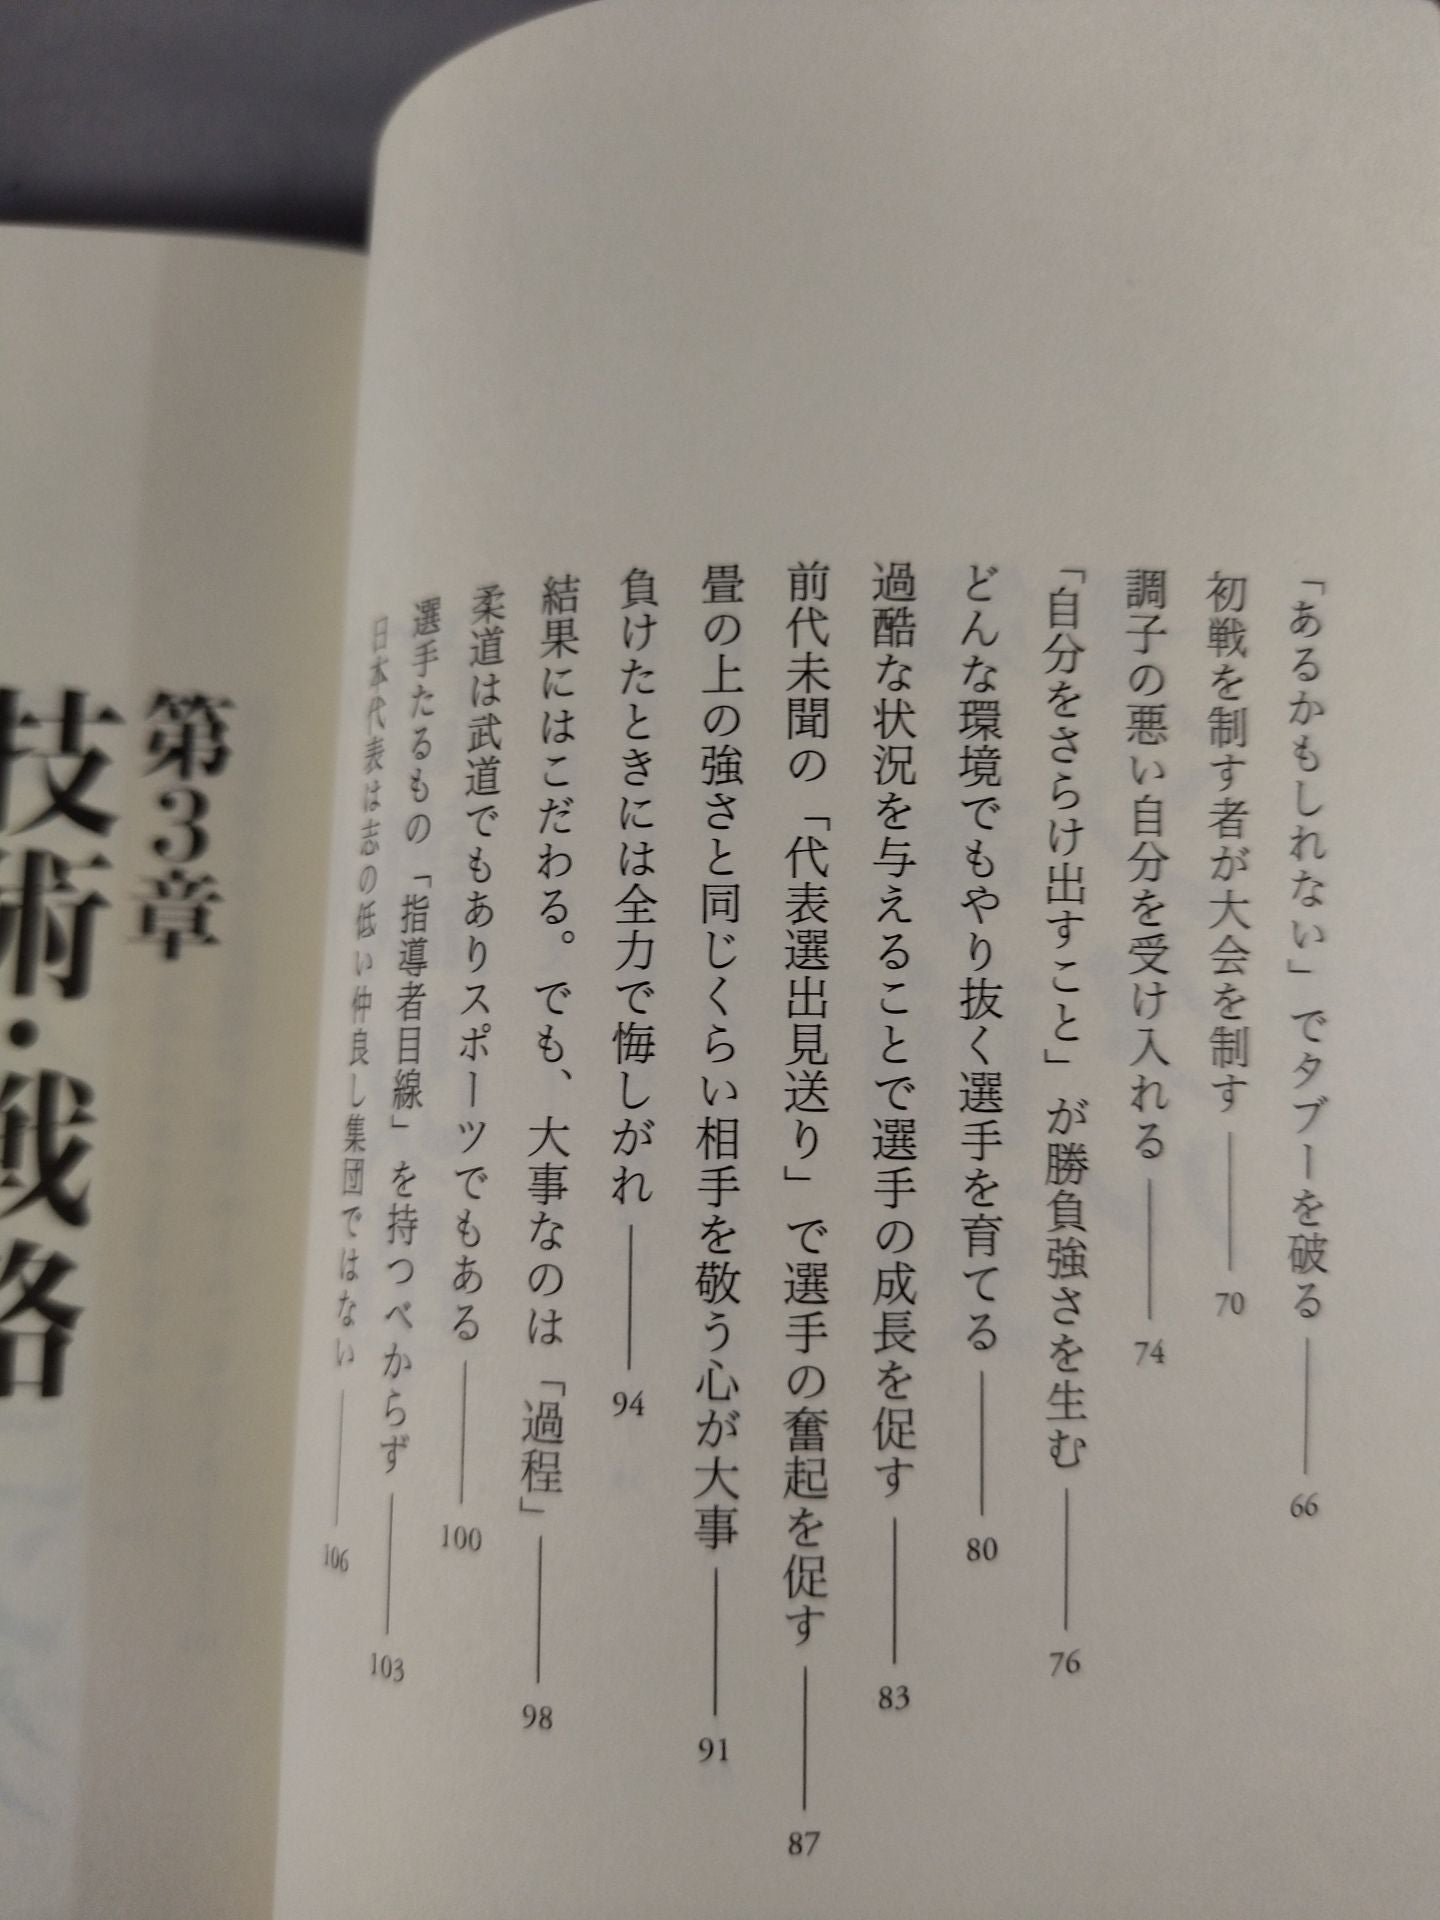 「あるかもしれない」でタブーを破る ── 66
初戦を制す者が大会を制す ── 70
調子の悪い自分を受け入れる ── 74
「自分をさらけ出すこと」が勝負強さを生む ── 76
どんな環境でもやり抜く選手を育てる ── 80
過酷な状況を与えることで選手の成長を促す ── 83
前代未聞の「代表選出見送り」で選手の奮起を促す ── 87
畳の上の強さと同じくらい相手を敬う心が大事 ── 91
負けたときには全力で悔しがれ ── 94
結果にはこだわる。でも、大事なのは「過程」 ── 98
柔道は武道でもありスポーツでもある ── 100
選手たるもの「指導者目線」を持つべからず ── 103
日本代表は志の低い仲良し集団ではない ── 106
第3章
技術・戦略